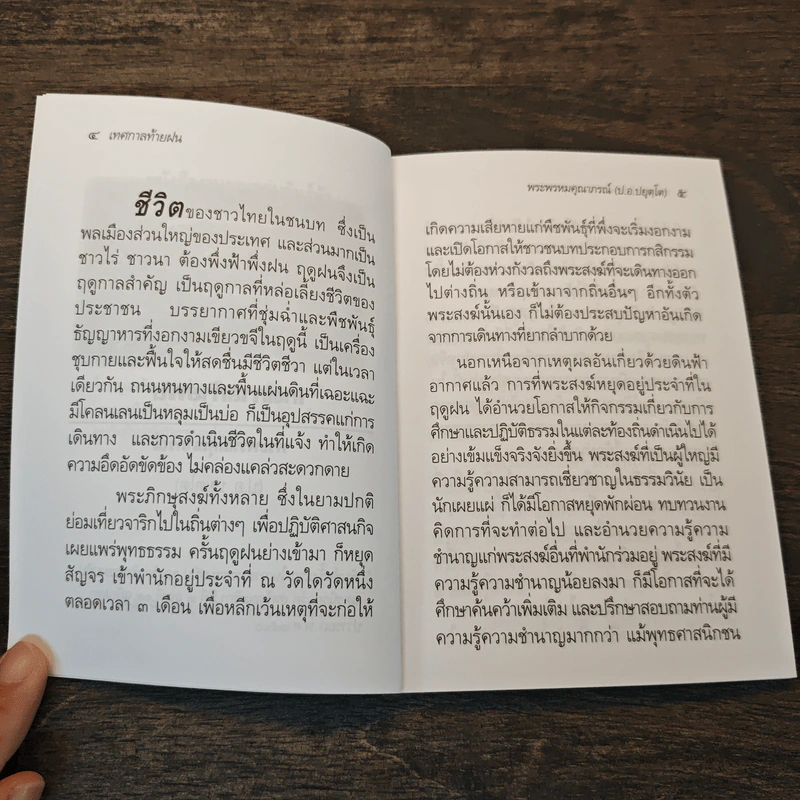 ๔ เทศกาลท้ายฝน
ชีวิตของชาวไทยในชนบท ซึ่งเป็น
พลเมืองส่วนใหญ่ของประเทศ และส่วนมากเป็น
ชาวไร่ ชาวนา ต้องพึ่งฟ้าพึ่งฝน ฤดูฝนจึงเป็น
ฤดูกาลสำคัญ เป็นฤดูกาลที่หล่อเลี้ยงชีวิตของ
ประชาชน บรรยากาศที่ชุ่มฉ่ำและพืชพันธุ์
ธัญญาหารที่งอกงามเขียวขจีในฤดูนี้ เป็นเครื่อง
ชุบกายและฟื้นใจให้สดชื่นมีชีวิตชีวา แต่ในเวลา
เดียวกัน ถนนหนทางและพื้นแผ่นดินที่เฉอะแฉะ
มีโคลนเลนเป็นหลุมเป็นบ่อ ก็เป็นอุปสรรคแก่การ
เดินทาง และการดำเนินชีวิตในที่แจ้ง ทำให้เกิด
ความอึดอัดขัดข้อง ไม่คล่องแคล่วสะดวกดาย
พระภิกษุสงฆ์ทั้งหลาย ซึ่งในยามปกติ
ย่อมเที่ยวจาริกไปในถิ่นต่างๆ เพื่อปฏิบัติศาสนกิจ
เผยแพร่พุทธธรรม ครั้นฤดูฝนย่างเข้ามา ก็หยุด
สัญจร เข้าพำนักอยู่ประจำที่ ณ วัดใดวัดหนึ่ง
ตลอดเวลา ๓ เดือน เพื่อหลีกเว้นเหตุที่จะก่อให้
พระพรหมคุณาภรณ์ (ป.อ.ปยุตฺโต) ๕
เกิดความเสียหายแก่พืชพันธุ์ที่พึ่งจะเริ่มงอกงาม
และเปิดโอกาสให้ชาวชนบทประกอบการกสิกรรม
โดยไม่ต้องห่วงกังวลถึงพระสงฆ์ที่จะเดินทางออก
ไปต่างถิ่น หรือเข้ามาจากถิ่นอื่นๆ อีกทั้งตัว
พระสงฆ์นั้นเอง ก็ไม่ต้องประสบปัญหาอันเกิด
จากการเดินทางที่ยากลำบากด้วย
นอกเหนือจากเหตุผลอันเกี่ยวด้วยดินฟ้า
อากาศแล้ว การที่พระสงฆ์หยุดอยู่ประจำที่ใน
ฤดูฝน ได้อำนวยโอกาสให้กิจกรรมเกี่ยวกับการ
ศึกษาและปฏิบัติธรรมในแต่ละท้องถิ่นดำเนินไปได้
อย่างเข้มแข็งจริงจังยิ่งขึ้น พระสงฆ์ที่เป็นผู้ใหญ่มี
ความรู้ความสามารถเชี่ยวชาญในธรรมวินัย เป็น
นักเผยแผ่ ก็ได้มีโอกาสหยุดพักผ่อน ทบทวนงาน
คิดการที่จะทำต่อไป และอำนวยความรู้ความ
ชำนาญแก่พระสงฆ์อื่นที่พำนักร่วมอยู่ พระสงฆ์ที่มี
ความรู้ความชำนาญน้อยลงมา ก็มีโอกาสที่จะได้
ศึกษาค้นคว้าเพิ่มเติม และปรึกษาสอบถามท่านผู้มี
ความรู้ความชำนาญมากกว่า แม้พุทธศาสนิกชน